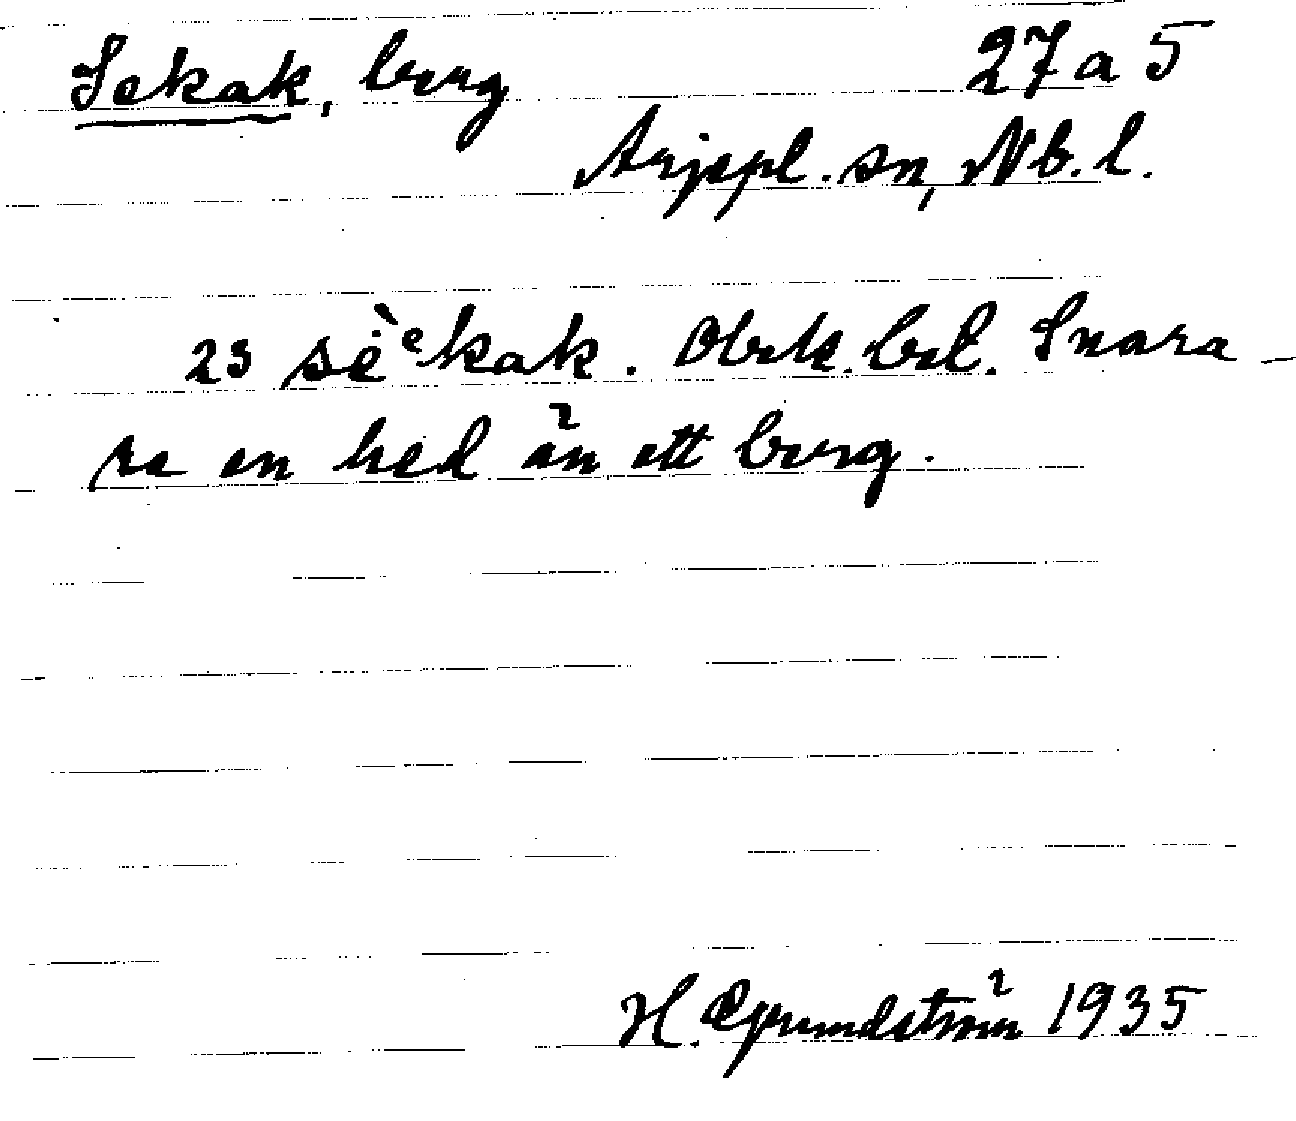 Sekak, berg 27 a 5
Arjepl. sn, Nb. l.
23 sė̀ᵉkak. Obek. bet. Snara-
re en hed än ett berg.
H. Grundström 1935